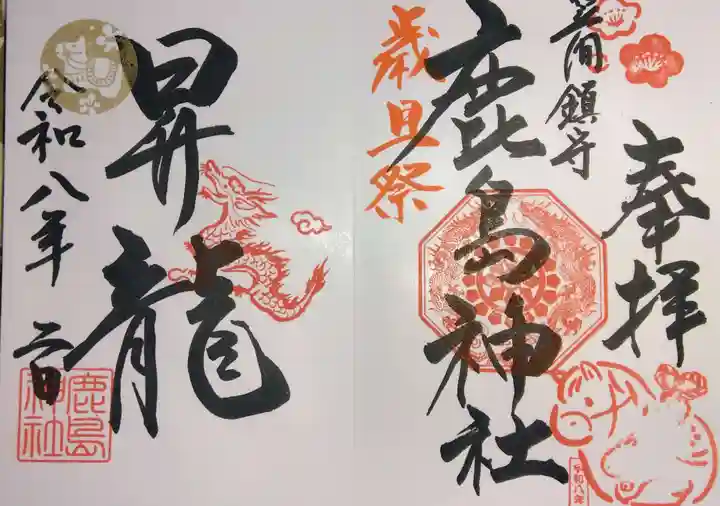 奉拝
鎮守
鹿島神社
歳旦祭
令和八年
昇龍
令和八年
鹿島
神社